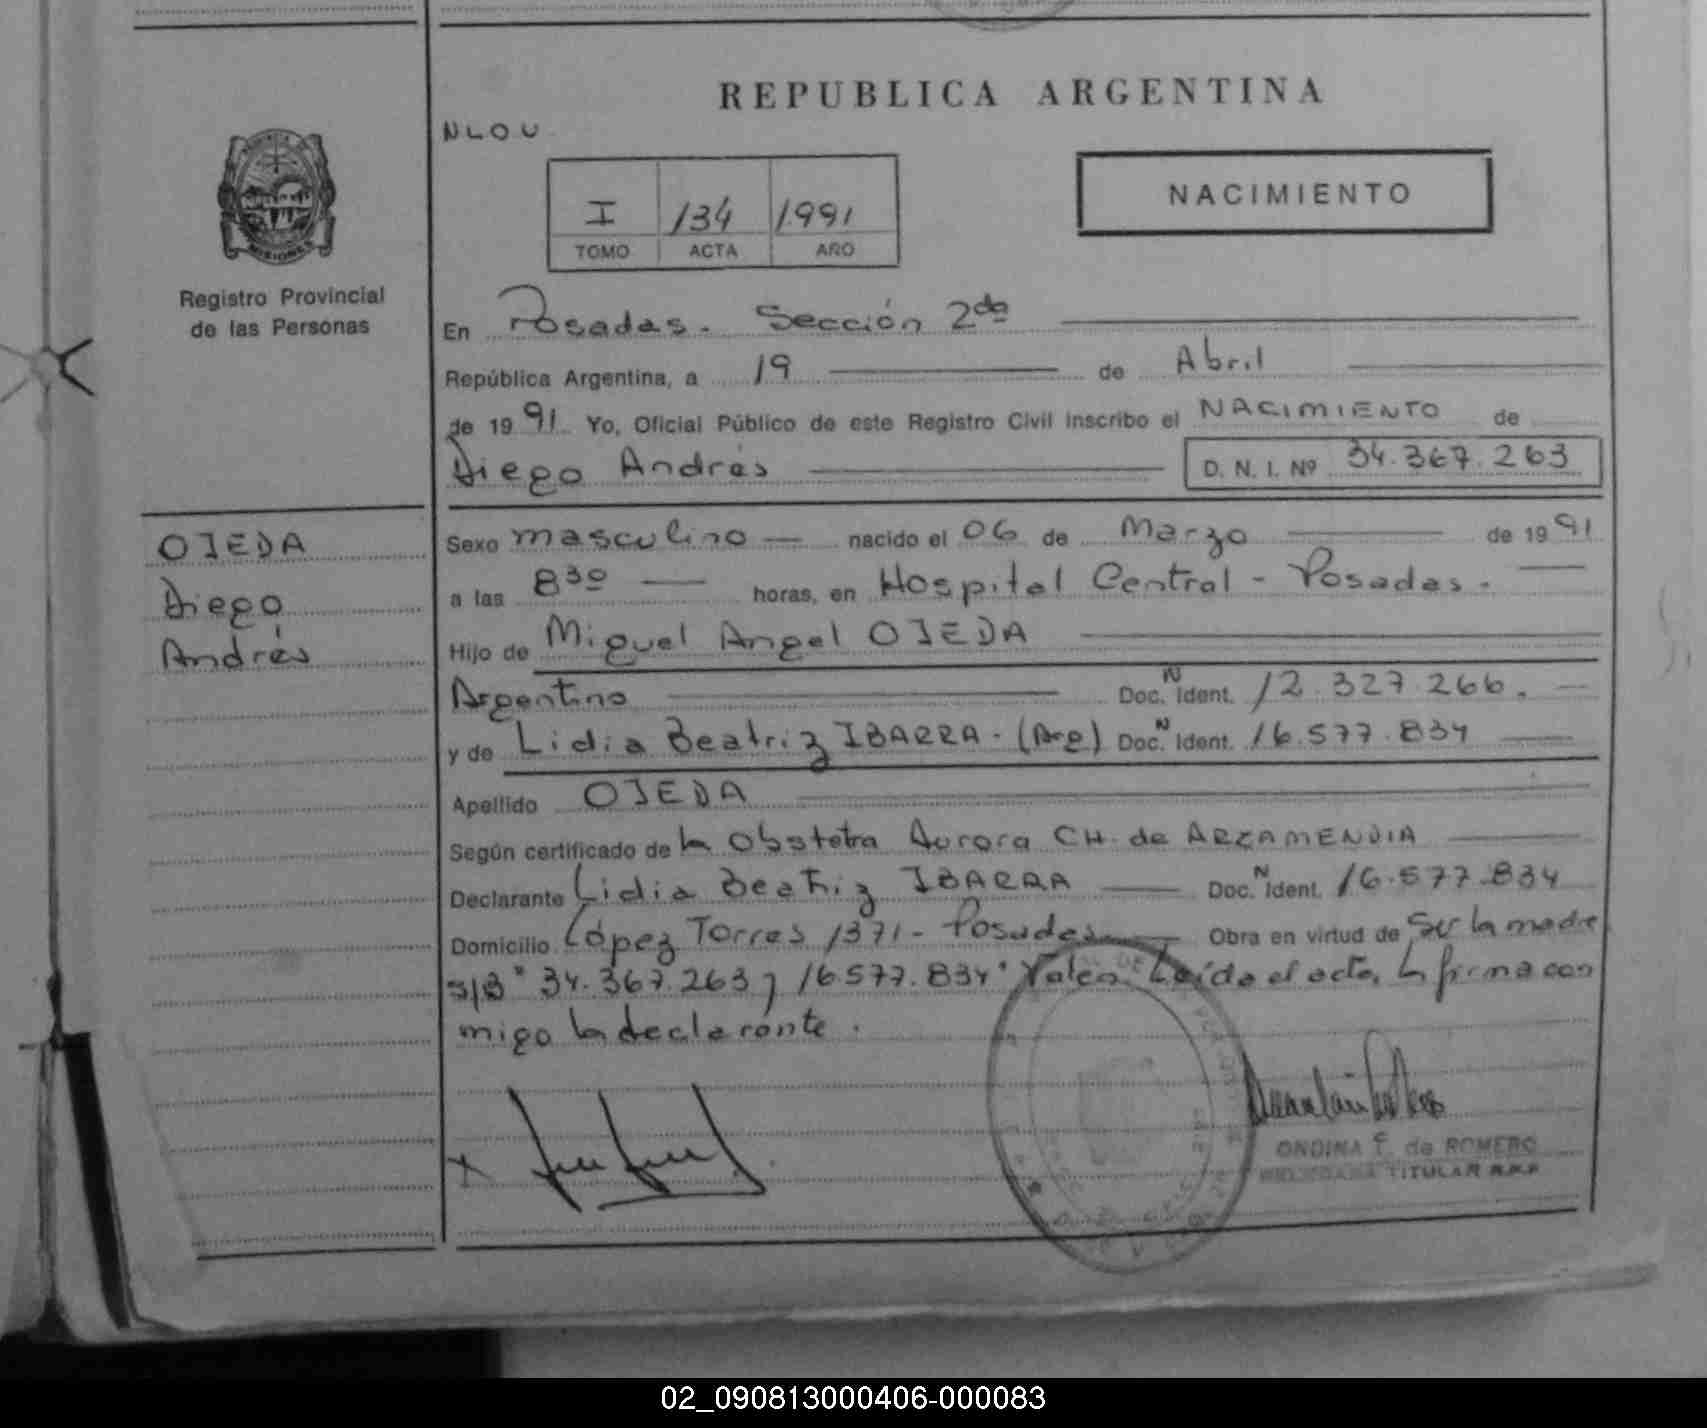 REPUBLICA ARGENTINA
NLOU
NACIMIENTO
I 134 1991
TOMO ACTA AÑO
MISIONES
Registro Provincial
de las Personas
En Posadas. Sección 2da
República Argentina, a 19 de Abril
de 1991. Yo, Oficial Público de este Registro Civil inscribo el NACIMIENTO de
Diego Andrés D. N. I. Nº 34.367.263
OJEDA
Diego
Andrés
Sexo masculino nacido el 06 de Marzo de 1991
a las 8 30 horas, en Hospital Central - Posadas.
Hijo de Miguel Angel OJEDA
Argentino Doc. N Ident. 12.327.266.
y de Lidia Beatriz IBARRA. (Arg) Doc. N Ident. 16.577.834
Apellido OJEDA
Según certificado de la Obstetra Aurora CH. de ARZAMENDIA
Declarante Lidia Beatriz IBARRA Doc. N Ident. 16.577.834
Domicilio López Torres 1371 - Posadas. Obra en virtud de ser la madre
S/B "34.367.263 y 16.577.834" Valen. Leída el acta, la firma con
migo la declarante.
ONDINA de ROMERO
TITULAR R.P.P
02_090813000406-000083